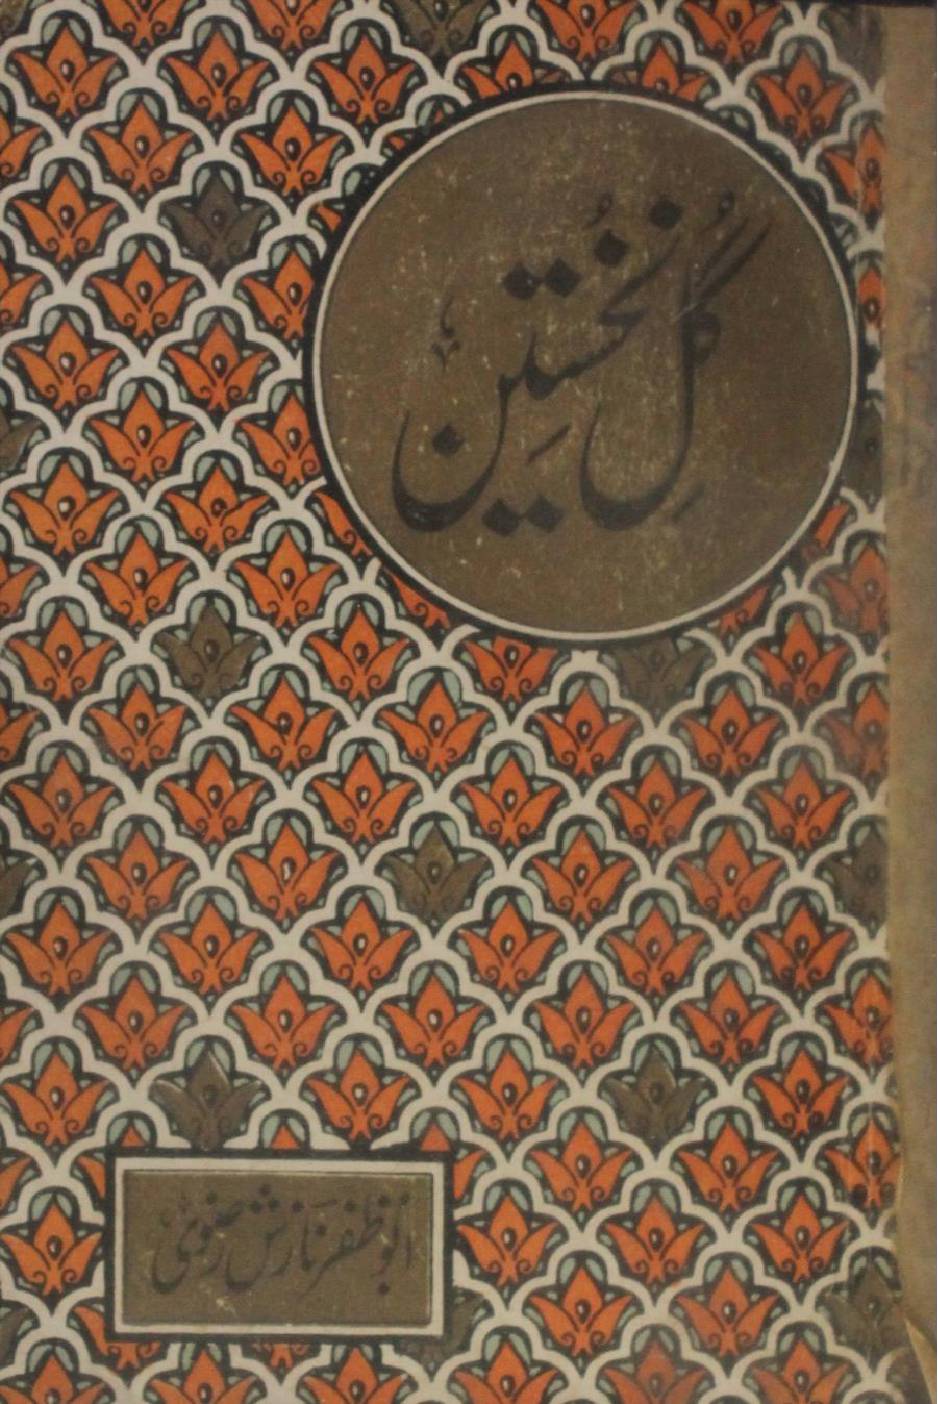 گُلِ نخُستیِن
ابُوظفر نازش رضوی